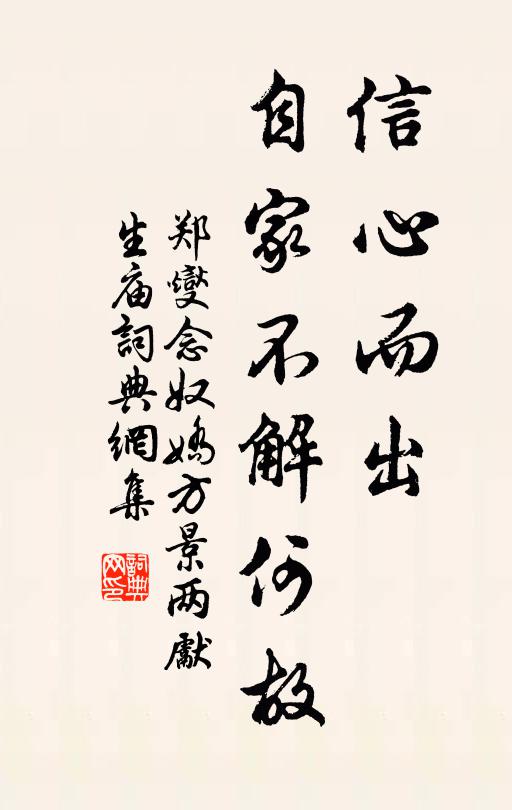 信心而出
自家不解何故
郑燮念奴嬌方景两獻
生庙詞典網集
詞典
网印